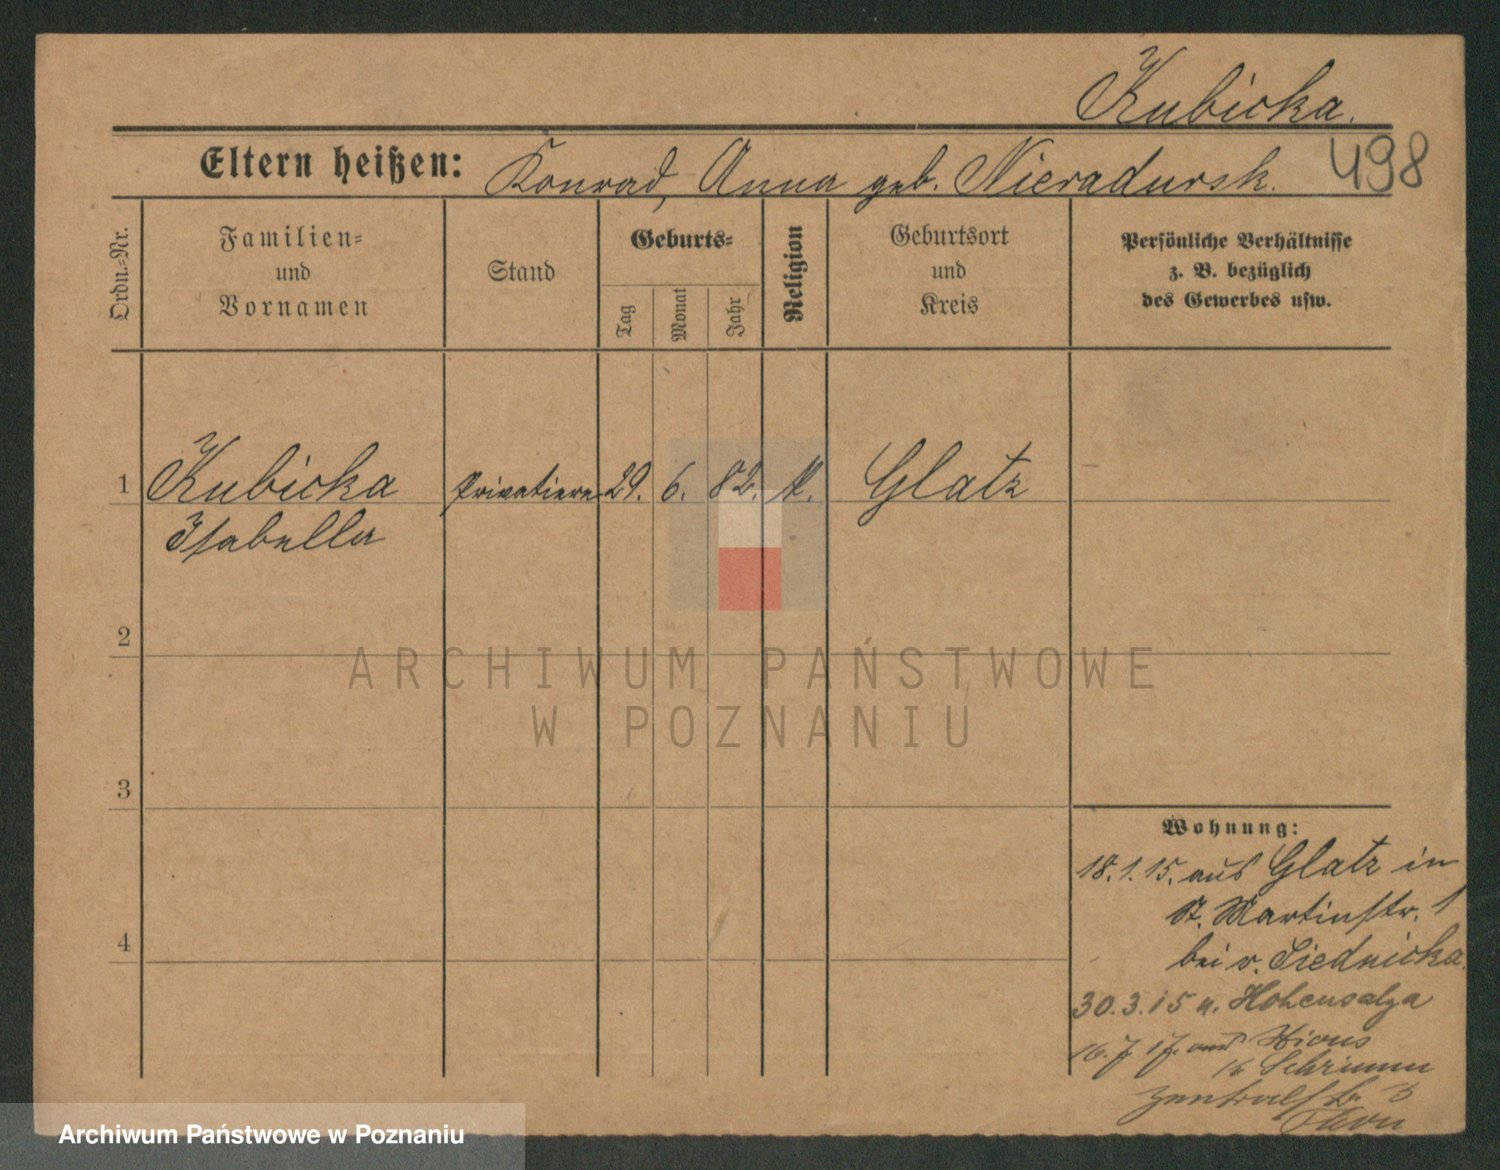 Kubicka.
498
Eltern heißen: Konrad, Anna geb. Nieradursk.
Ordn.-Nr.
Familien-
und
Vornamen
Stand
Geburts-
Tag
Monat
Jahr
Religion
Geburtsort
und
Kreis
Persönliche Verhältnisse
z. B. bezüglich
des Gewerbes usw.
1 Kubicka Privatiere 29. 6. 82. k. Glatz
Isabella
2
3
4
Wohnung:
18.1.15. aus Glatz in
St. Martinstr. 1
bei v. Siednicka.
30.3.15 n. Hohensalza
16.7.17. aus Xions
Schrimm
Zentralstr. 3
ARCHIWUM PAŃSTWOWE
W POZNANIU
Archiwum Państwowe w Poznaniu